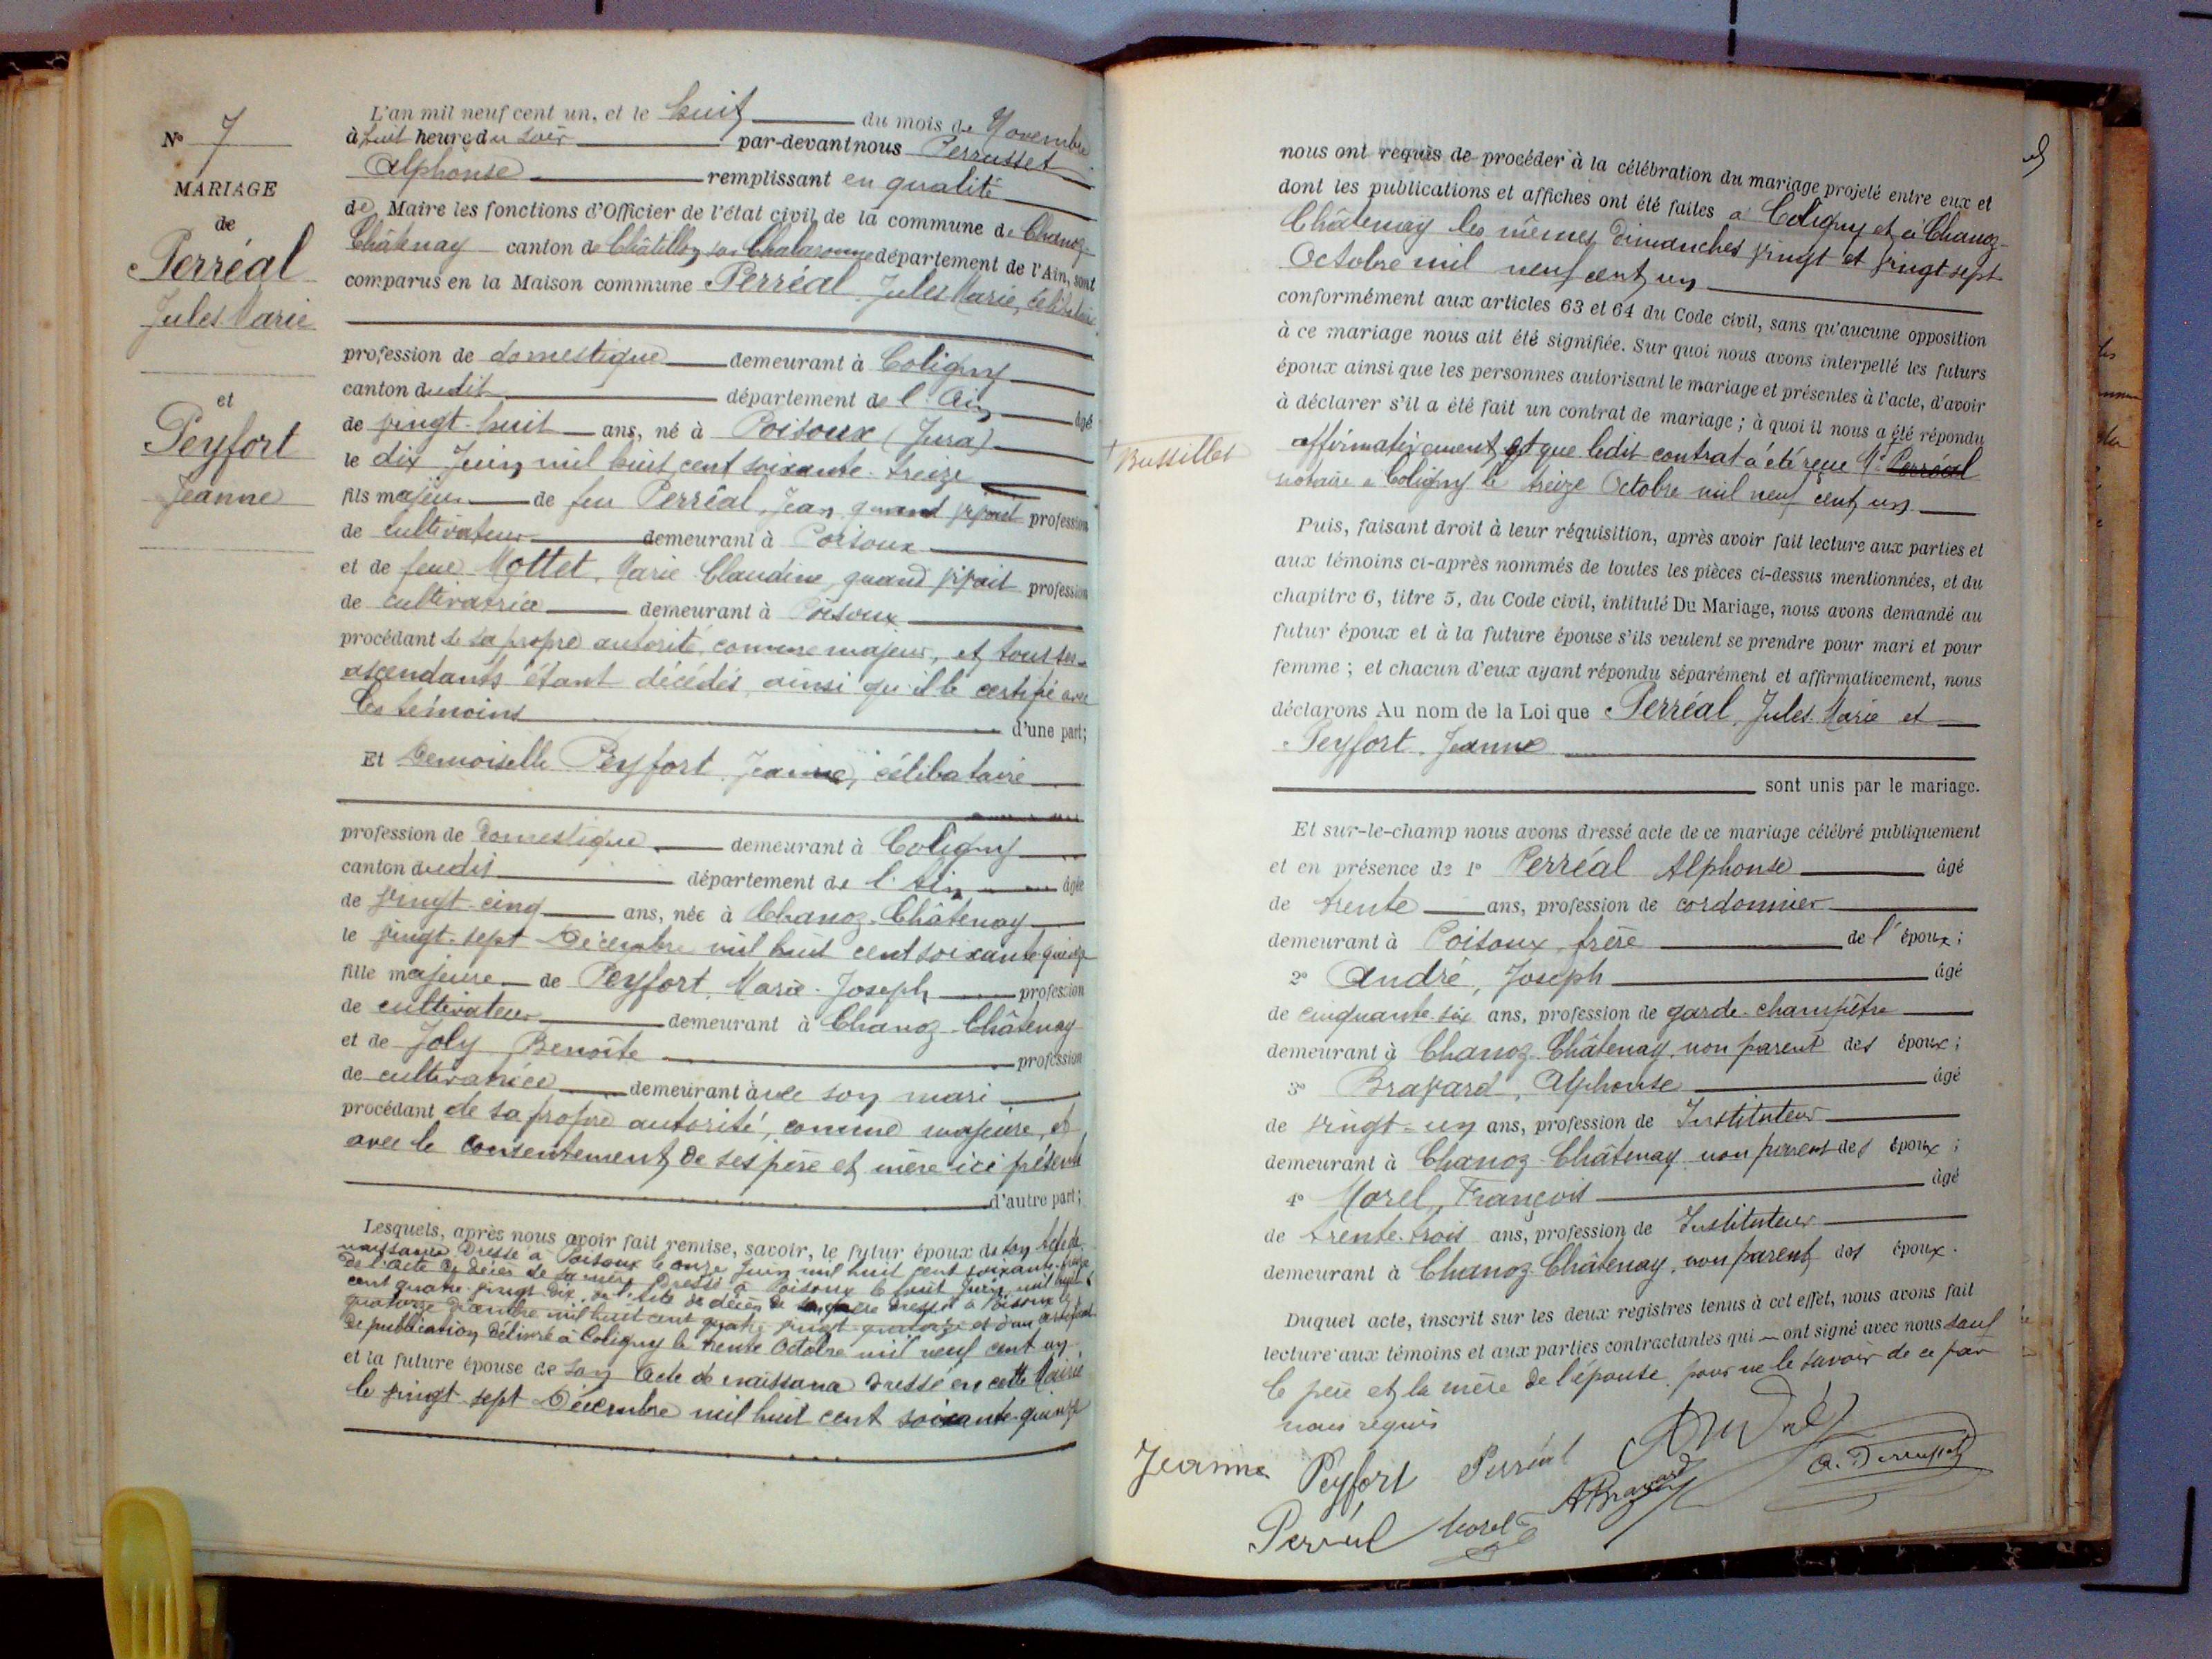 N° 7
MARIAGE
de
Perréal
Jules Marie
et
Peyfort
Jeanne
L'an mil neuf cent un, et le huit du mois de Novembre
à huit heure du soir par-devant nous Perrusset
Alphonse remplissant en qualité
de Maire les fonctions d'Officier de l'état civil de la commune de Chanoz-
Châtenay canton de Châtillon sur Chalaronne département de l'Ain, sont
comparus en la Maison commune Perréal Jules Marie, célibataire
profession de domestique demeurant à Coligny
canton dudit département de l'Ain âgé
de vingt-huit ans, né à Poisoux (Jura)
le dix Juin mil huit cent soixante-treize
fils majeur de feu Perréal, Jean quand vivait profession
de cultivateur demeurant à Poisoux
et de feue Mottet, Marie Claudine, quand vivait profession
de cultivatrice demeurant à Poisoux
procédant de sa propre autorité, comme majeur, et tous ses
ascendants étant décédés ainsi qu'il le certifie avec
les témoins d'une part;
Et Demoiselle Peyfort Jeanne, célibataire
profession de domestique demeurant à Coligny
canton dudit département de l'Ain âgée
de vingt-cinq ans, née à Chanoz-Châtenay
le vingt-sept Décembre mil huit cent soixante-quinze
fille majeure de Peyfort, Marie-Joseph profession
de cultivateur demeurant à Chanoz-Châtenay
et de Joly Benoîte profession
de cultivatrice demeurant avec son mari
procédant de sa propre autorité, comme majeure, et
avec le consentement de ses père et mère ici présents
d'autre part;
Lesquels, après nous avoir fait remise, savoir, le futur époux de son acte de
naissance dressé à Poisoux le onze Juin mil huit cent soixante-treize
de l'acte de décès de sa mère dressé à Poisoux le huit Juin mil huit
cent quatre-vingt-dix, de l'acte de décès de son père dressé à Poisoux le
quatorze décembre mil huit cent quatre-vingt-quatorze et d'un certificat
de publication délivré à Coligny le trente Octobre mil neuf cent un,
et la future épouse de son acte de naissance dressé en cette Mairie
le vingt-sept Décembre mil huit cent soixante-quinze
nous ont requis de procéder à la célébration du mariage projeté entre eux et
dont les publications et affiches ont été faites à Coligny et à Chanoz-
Châtenay les mêmes dimanches vingt et vingt sept
Octobre mil neuf cent un
conformément aux articles 63 et 64 du Code civil, sans qu'aucune opposition
à ce mariage nous ait été signifiée. Sur quoi nous avons interpellé les futurs
époux ainsi que les personnes autorisant le mariage et présentes à l'acte, d'avoir
à déclarer s'il a été fait un contrat de mariage ; à quoi il nous a été répondu
Bussillet
affirmativement et que ledit contrat a été reçu Me Perréal
notaire à Coligny le treize Octobre mil neuf cent un
Puis, faisant droit à leur réquisition, après avoir fait lecture aux parties et
aux témoins ci-après nommés de toutes les pièces ci-dessus mentionnées, et du
chapitre 6, titre 5, du Code civil, intitulé Du Mariage, nous avons demandé au
futur époux et à la future épouse s'ils veulent se prendre pour mari et pour
femme ; et chacun d'eux ayant répondu séparément et affirmativement, nous
déclarons Au nom de la Loi que Perréal, Jules Marie et
Peyfort Jeanne
sont unis par le mariage.
Et sur-le-champ nous avons dressé acte de ce mariage célébré publiquement
et en présence de 1° Perréal Alphonse âgé
de trente ans, profession de cordonnier
demeurant à Poisoux, frère de l'époux;
2° André, Joseph âgé
de cinquante-six ans, profession de garde-champêtre
demeurant à Chanoz-Châtenay, non parent des époux;
3° Bravard, Alphonse âgé
de vingt-un ans, profession de Instituteur
demeurant à Chanoz-Châtenay non parent des époux;
4° Morel, François âgé
de trente-trois ans, profession de Instituteur
demeurant à Chanoz-Châtenay, non parent des époux.
Duquel acte, inscrit sur les deux registres tenus à cet effet, nous avons fait
lecture aux témoins et aux parties contractantes qui ont signé avec nous sauf
le père et la mère de l'épouse pour ne le savoir de ce par
nous requis
Jeanne Peyfort Perréal André
A. Perrusset
Perréal Morel A Bravard